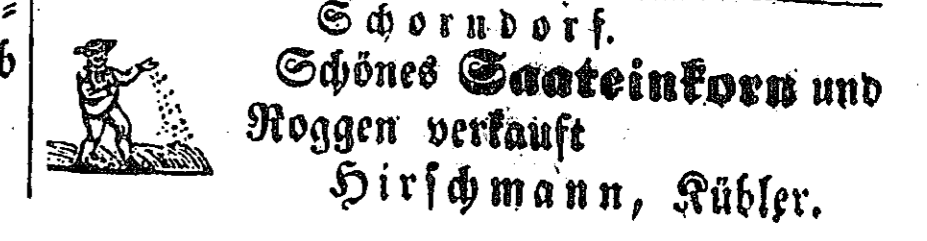 Schorndorf.
Schönes Saateinkorn und
Roggen verkauft
Hirschmann, Kübler.